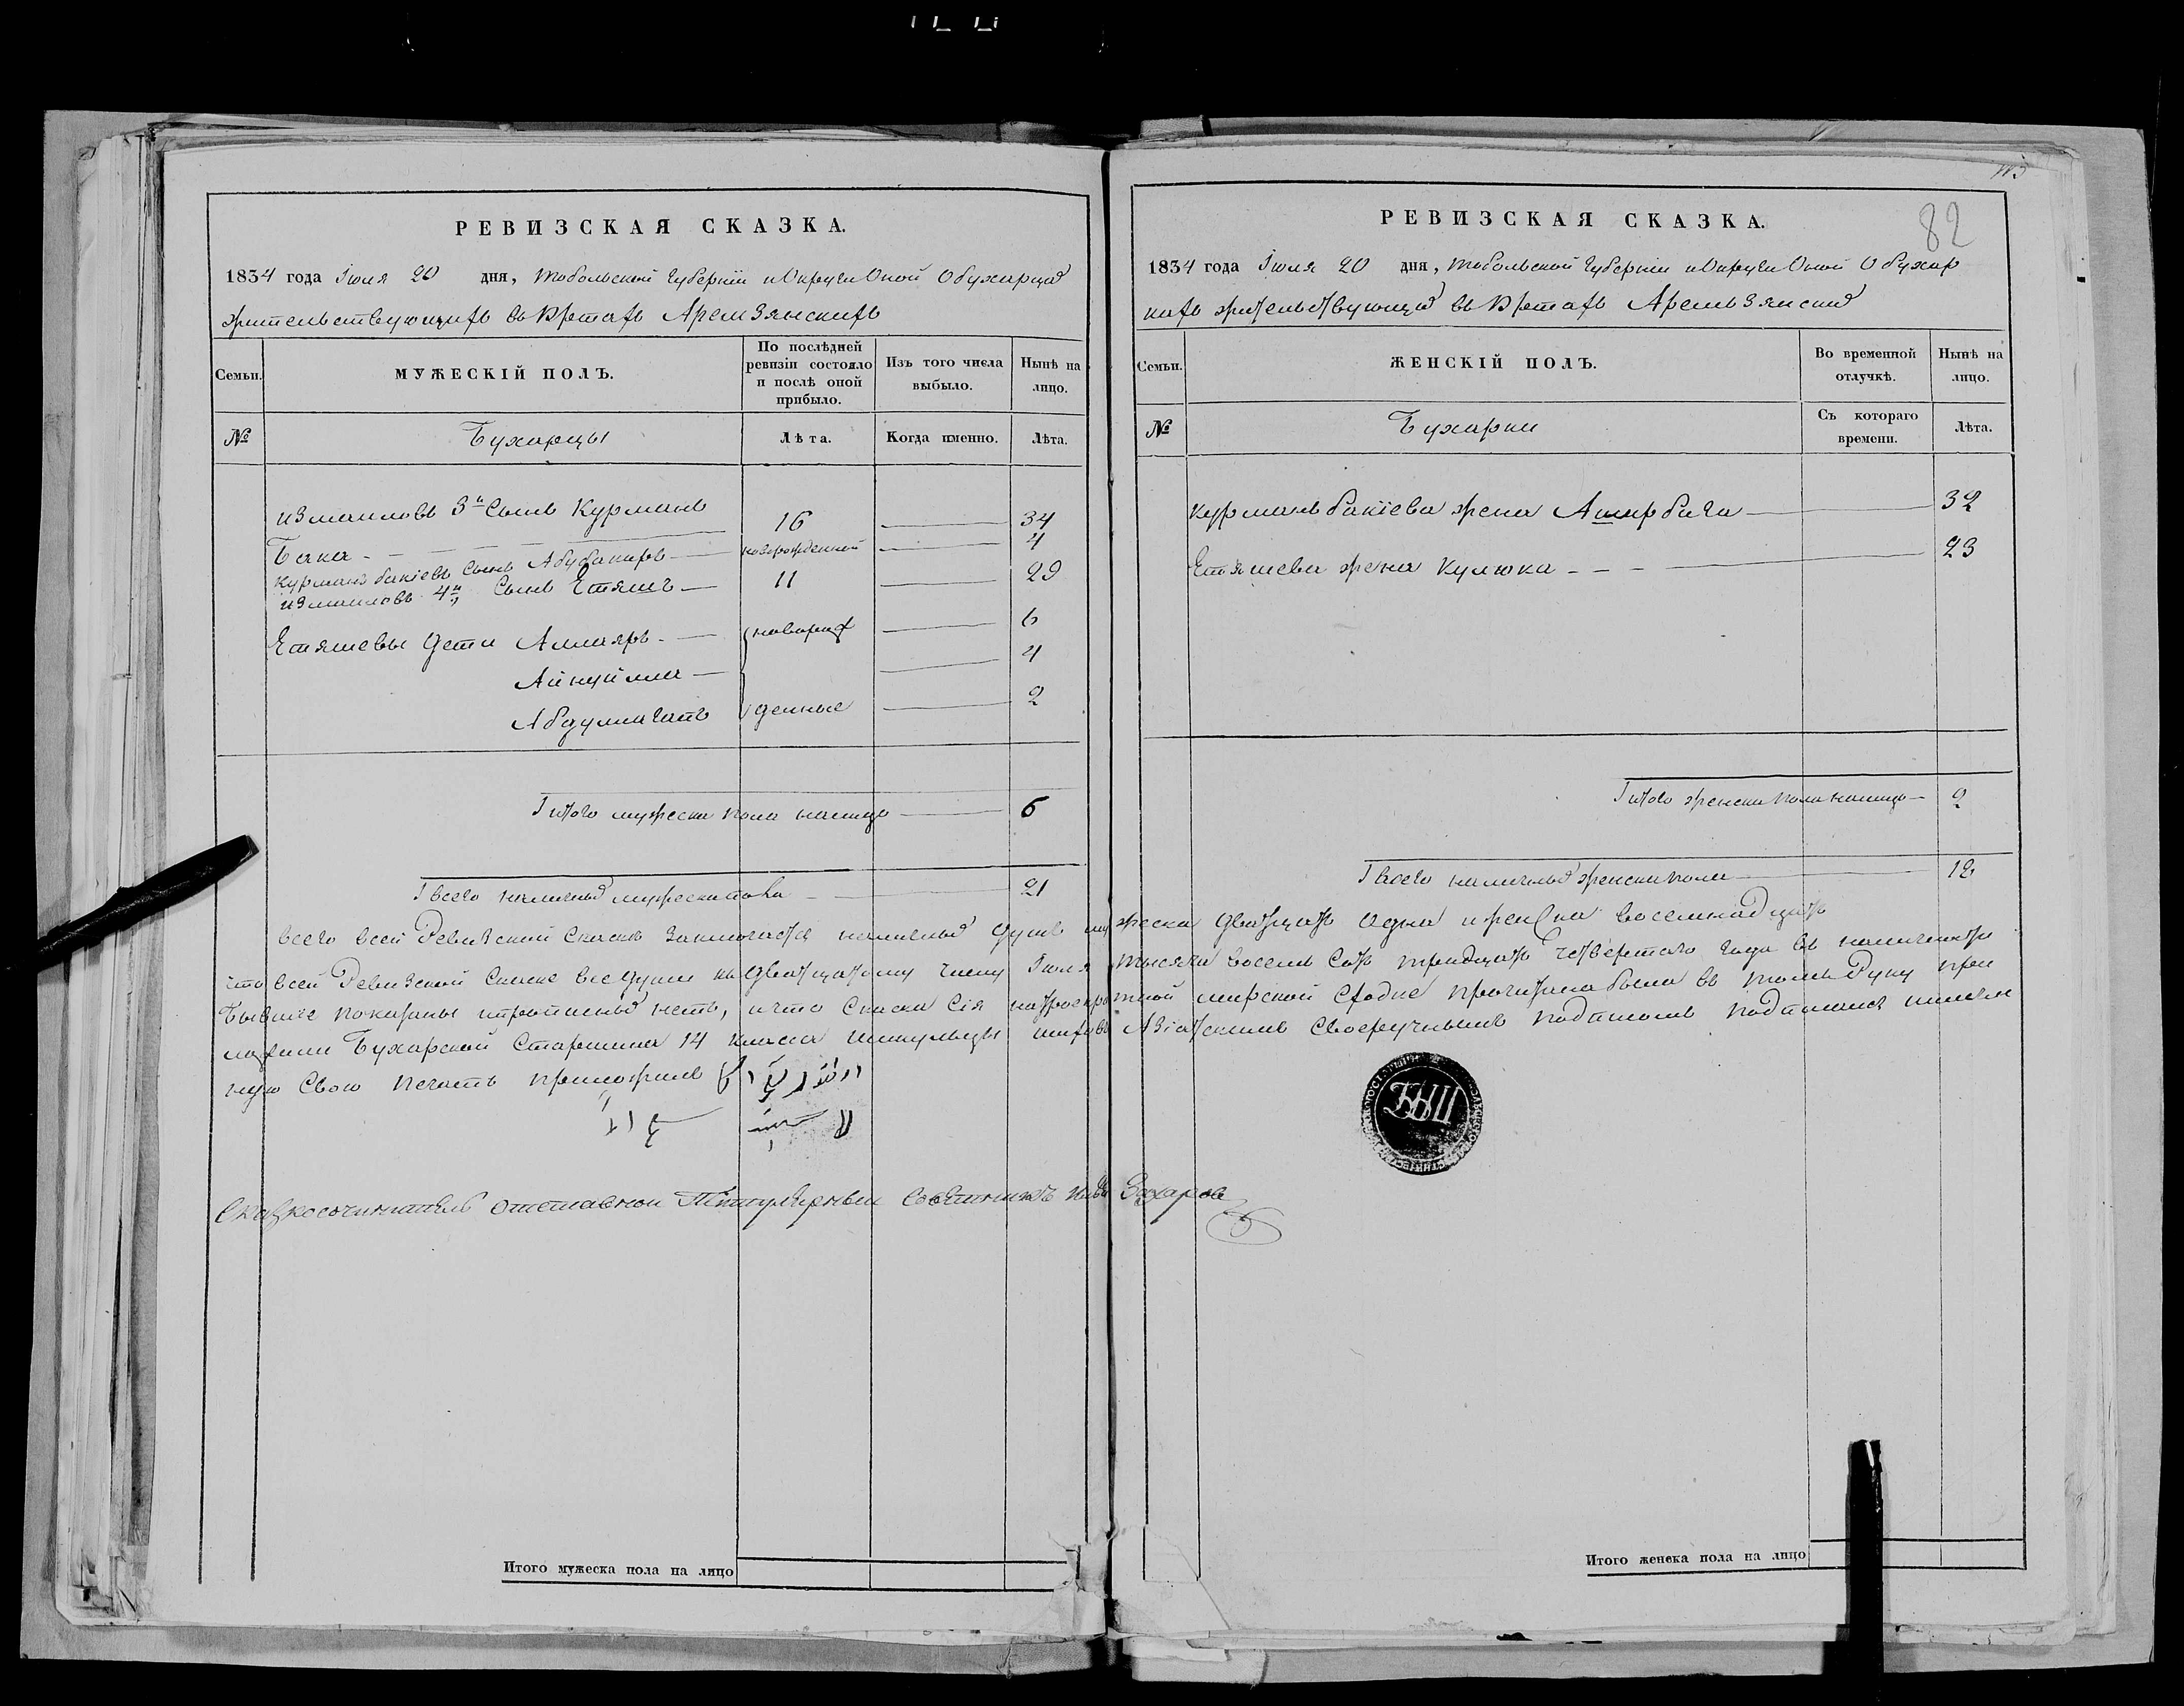 РЕВИЗСКАЯ СКАЗКА.
1834 года Июля 20 дня, Тобольской Губернiи и Округи Оной О бухарцах
жительствующихъ въ Юртахъ Аремзянскихъ
Семьи.
МУЖЕСКІЙ ПОЛЪ.
По послѣдней
ревизіи состояло
и послѣ оной
прибыло.
Изъ того числа
выбыло.
Нынѣ на
лицо.
№
Бухарцы
Лѣта.
Когда именно.
Лѣта.
измаиловъ 3й Сынъ Курманъ 16 34
Бака новорожденной 4
Курманъ бакіевъ Сынъ Абубакиръ
измаиловъ 4й Сынъ Етяшъ 11 29
Етяшевы Дети Аллаяръ новорож 6
4
Абдулла денные 2
Итого мужеска пола налицо 6
Всего наличных мужеска пола 21
Итого мужеска пола на лицо
82
РЕВИЗСКАЯ СКАЗКА.
1834 года Июля 20 дня, Тобольской Губернiи и Округи Оной О бухар
кахъ жительствующих въ Юртахъ Аремзянских
Семьи.
ЖЕНСКІЙ ПОЛЪ.
Во временной
отлучкѣ.
Нынѣ на
лицо.
№
Бухарки
Съ котораго
времени.
Лѣта.
Курманъ бакіева жена 32
Етяшева жена Кулюка 23
Итого женска пола налицо 2
Всего наличных женска пола 18
всего в сей Ревизской Сказкѣ заключается наличных душъ мужеска двадцать одна и женска восемнадцать
что в сей Ревизской Сказке все души къ двадцатому числу Июля тысяча восемь сотъ тридцать четвертаго года въ наличности
бывшiе показаны и прописных нетъ, и что Сказка Сiя на мирской сходке прочитана была въ томъ Руку при
ложили Бухарской Старшина 14 класса Азіатскимъ Своеручнымъ подписомъ подписался и имян
ную Свою печать приложилъ
Сказкосочинитель отставной Титулярный Советникъ Захаров
Итого женска пола на лицо